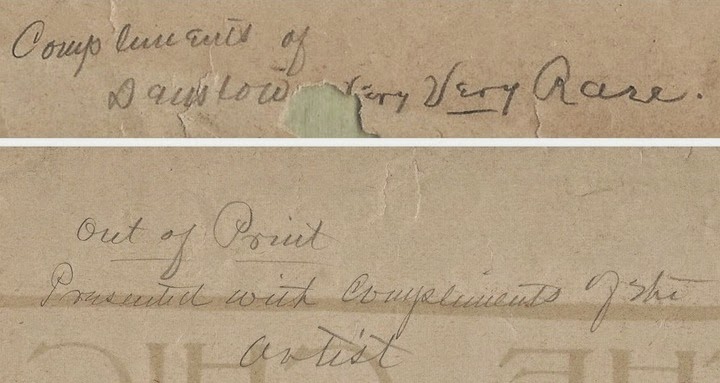 Compliments of
Danslow Very Very Rare.
Out of Print
Presented with Compliments of the
Artist
THE CHIC